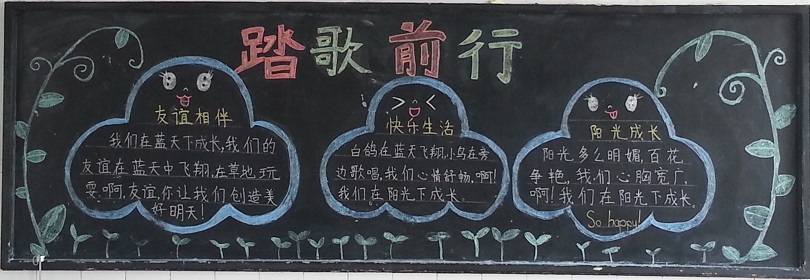 踏歌前行
友谊相伴
我们在蓝天下成长,我们的
友谊在蓝天中飞翔,在草地玩
耍,啊,友谊,你让我们创造美
好明天!
快乐生活
白鸽在蓝天飞翔,小鸟在旁
边歌唱,我们心情舒畅,啊!
我们在阳光下成长.
阳光成长
阳光多么明媚,百花
争艳,我们心胸宽广,
啊!我们在阳光下成长,
So happy!